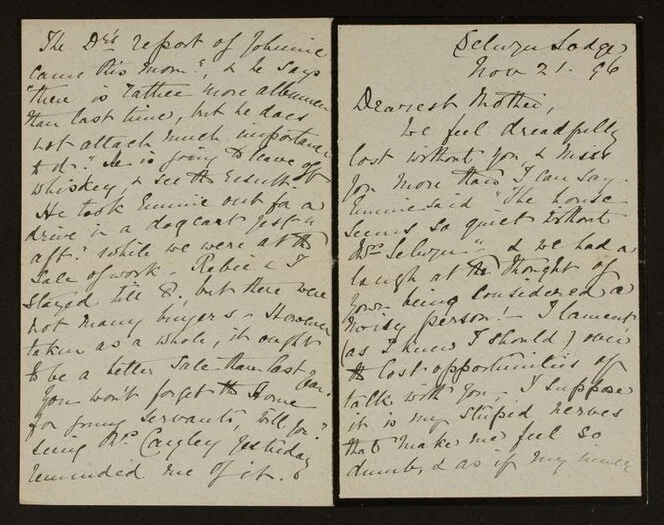 Selwyn Lodge
Nov 21. 96
Dearest Mother,
We feel dreadfully
lost without you, & miss
you more than I can say.
Emmie said "The house
seems so quiet without
Mrs Selwyn" - & we had a
laugh at the thought of
your being considered a
noisy person! - I lament
(as I knew I should) over
the lost opportunities of
talk with you, I suppose
it is my stupid nerves
that make me feel so
dumb, & as if my
The Dr's report of Johnnie
came this morng, & he says
"there is rather more albumen
than last time, but he does
not attach much importance
to it." He is going to leave off
whiskey, & see the result.
He took Emmie out for a
drive in a dogcart yesty
aft. while we were at the
Sale of work - & I
stayed till 8, but there were
not many buyers - However
taken as a whole, it ought
to be a better Sale than last year.
You won't forget the Home
for young servants, will you?
seeing Mrs yesterday
reminded me of it. &